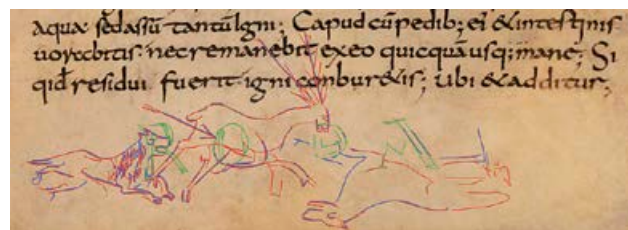 aquae sed assū tantū Igni; Capud cū pedib; ei & intestinis
uorabitis. nec remanebit ex eo quicquā usq; mane; Si
qid residui fuerit igni conburetis; ubi & additur;